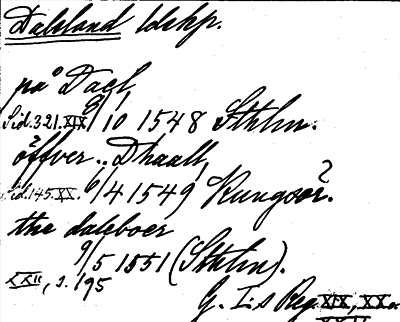 Dalsland ldskp.
på Dael,
Sid. 321. XIX 8/10 1548 Sthlm.
öffver .. Dhaall,
Sid. 145. XX. 6/4 1549 Kungsör.
the daleboer
9/5 1551 (Sthlm).
XXII, s. 195
G. I:s Reg. XIX, XX o.
XXII